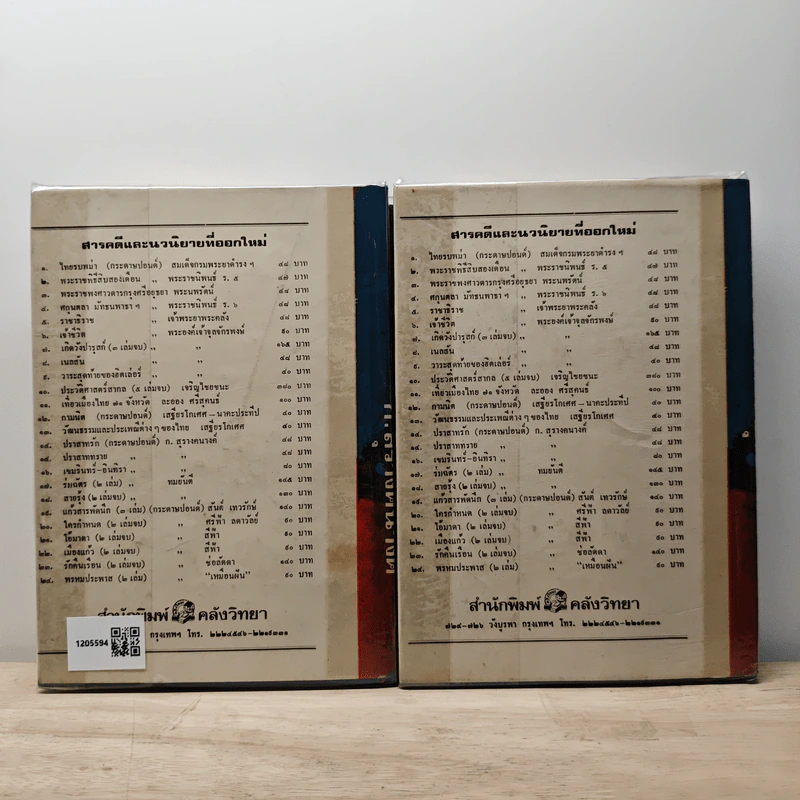 สารคดีและนวนิยายที่ออกใหม่
๑. ไทยรบพม่า (กระดาษปอนด์) สมเด็จกรมพระยาดำรง ฯ ๔๘ บาท
๒. พระราชพิธีสิบสองเดือน ,, พระราชนิพนธ์ ร. ๕ ๔๗ บาท
๓. พระราชพงศาวดารกรุงศรีอยุธยา พระนพรัตน์ ๔๔ บาท
๔. ศกุนตลา มัทธนพาธา ฯ ,, พระราชนิพนธ์ ร. ๖ ๔๘ บาท
๕. ราชาธิราช ,, เจ้าพระยาพระคลัง ๔๘ บาท
๖. เจ้าชีวิต ,, พระองค์เจ้าจุลจักรพงษ์ ๕๐ บาท
๗. เกิดวังปารุสก์ (๓ เล่มจบ) ,, ,, ๑๖๕ บาท
๘. เนลสัน ,, ,, ๔๘ บาท
๙. วาระสุดท้ายของฮิตเล่อร์ ,, ,, ๔๐ บาท
๑๐. ประวัติศาสตร์สากล (๕ เล่มจบ) เจริญ ไชยชนะ ๓๙๐ บาท
๑๑. เที่ยวเมืองไทย ๗๑ จังหวัด ละออง ศรีสุคนธ์ ๑๐๐ บาท
๑๒. กามนิต (กระดาษปอนด์) เสฐียรโกเศศ-นาคะประทีป ๔๐ บาท
๑๓. วัฒนธรรมและประเพณีต่าง ๆ ของไทย เสฐียรโกเศศ ๕๐ บาท
๑๔. ปราสาทรัก (กระดาษปอนด์) ก. สุรางคนางค์ ๔๔ บาท
๑๕. ปราสาททราย ,, ,, ๔๔ บาท
๑๖. เขมรินทร์-อินทิรา ,, ,, ๘๐ บาท
๑๗. ร่มฉัตร (๒ เล่ม) ,, ทมยันตี ๑๔๕ บาท
๑๘. สายรุ้ง (๒ เล่มจบ) ,, ,, ๑๓๐ บาท
๑๙. แก้วสารพัดนึก (๓ เล่ม) (กระดาษปอนด์) สันต์ เทวรักษ์ ๑๔๐ บาท
๒๐. ใครกำหนด (๒ เล่มจบ) ,, ศรีฟ้า ลดาวัลย์ ๙๐ บาท
๒๑. โอ้มาดา (๒ เล่มจบ) ,, สีฟ้า ๙๐ บาท
๒๒. เมืองแก้ว (๒ เล่มจบ) ,, สีฟ้า ๙๐ บาท
๒๓. รักคืนเรือน (๒ เล่มจบ) ,, ช่อลัดดา ๑๔๐ บาท
๒๔. พรหมประพาส (๒ เล่ม) ,, "เหมือนฝัน" ๙๐ บาท
สำนักพิมพ์ คลังวิทยา
กรุงเทพฯ โทร. ๒๒๒๔๕๔๖-๒๒๑๙๓๓๑
1205594
สารคดีและนวนิยายที่ออกใหม่
๑. ไทยรบพม่า (กระดาษปอนด์) สมเด็จกรมพระยาดำรง ฯ ๔๘ บาท
๒. พระราชพิธีสิบสองเดือน ,, พระราชนิพนธ์ ร. ๕ ๔๗ บาท
๓. พระราชพงศาวดารกรุงศรีอยุธยา พระนพรัตน์ ๔๔ บาท
๔. ศกุนตลา มัทธนพาธา ฯ ,, พระราชนิพนธ์ ร. ๖ ๔๘ บาท
๕. ราชาธิราช ,, เจ้าพระยาพระคลัง ๔๘ บาท
๖. เจ้าชีวิต ,, พระองค์เจ้าจุลจักรพงษ์ ๕๐ บาท
๗. เกิดวังปารุสก์ (๓ เล่มจบ) ,, ,, ๑๖๕ บาท
๘. เนลสัน ,, ,, ๔๘ บาท
๙. วาระสุดท้ายของฮิตเล่อร์ ,, ,, ๔๐ บาท
๑๐. ประวัติศาสตร์สากล (๕ เล่มจบ) เจริญ ไชยชนะ ๓๙๐ บาท
๑๑. เที่ยวเมืองไทย ๗๑ จังหวัด ละออง ศรีสุคนธ์ ๑๐๐ บาท
๑๒. กามนิต (กระดาษปอนด์) เสฐียรโกเศศ-นาคะประทีป ๔๐ บาท
๑๓. วัฒนธรรมและประเพณีต่าง ๆ ของไทย เสฐียรโกเศศ ๕๐ บาท
๑๔. ปราสาทรัก (กระดาษปอนด์) ก. สุรางคนางค์ ๔๔ บาท
๑๕. ปราสาททราย ,, ,, ๔๔ บาท
๑๖. เขมรินทร์-อินทิรา ,, ,, ๘๐ บาท
๑๗. ร่มฉัตร (๒ เล่ม) ,, ทมยันตี ๑๔๕ บาท
๑๘. สายรุ้ง (๒ เล่มจบ) ,, ,, ๑๓๐ บาท
๑๙. แก้วสารพัดนึก (๓ เล่ม) (กระดาษปอนด์) สันต์ เทวรักษ์ ๑๔๐ บาท
๒๐. ใครกำหนด (๒ เล่มจบ) ,, ศรีฟ้า ลดาวัลย์ ๙๐ บาท
๒๑. โอ้มาดา (๒ เล่มจบ) ,, สีฟ้า ๙๐ บาท
๒๒. เมืองแก้ว (๒ เล่มจบ) ,, สีฟ้า ๙๐ บาท
๒๓. รักคืนเรือน (๒ เล่มจบ) ,, ช่อลัดดา ๑๔๐ บาท
๒๔. พรหมประพาส (๒ เล่ม) ,, "เหมือนฝัน" ๙๐ บาท
สำนักพิมพ์ คลังวิทยา
๗๒๔-๗๒๖ วังบูรพา กรุงเทพฯ โทร. ๒๒๒๔๕๔๖-๒๒๑๙๓๓๑